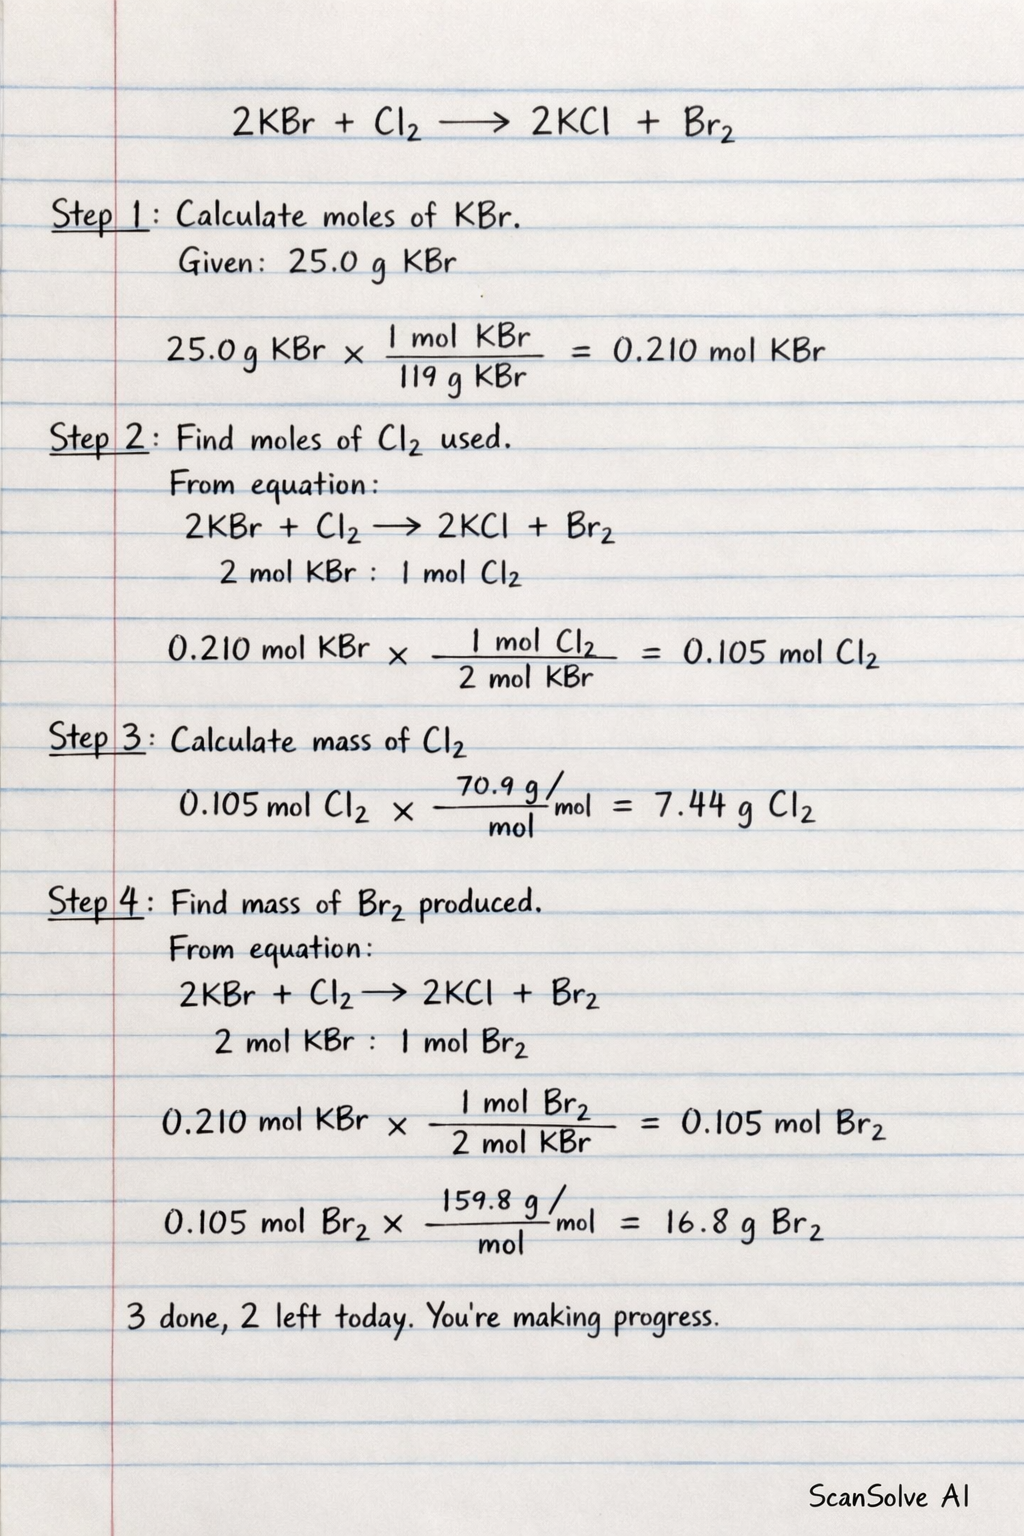 2KBr + Cl₂ ⟶ 2KCl + Br₂
Step 1: Calculate moles of KBr.
Given: 25.0 g KBr
25.0 g KBr × 1 mol KBr / 119 g KBr = 0.210 mol KBr
Step 2: Find moles of Cl₂ used.
From equation:
2KBr + Cl₂ ⟶ 2KCl + Br₂
2 mol KBr : 1 mol Cl₂
0.210 mol KBr × 1 mol Cl₂ / 2 mol KBr = 0.105 mol Cl₂
Step 3: Calculate mass of Cl₂
0.105 mol Cl₂ × 70.9 g/mol / mol = 7.44 g Cl₂
Step 4: Find mass of Br₂ produced.
From equation:
2KBr + Cl₂ ⟶ 2KCl + Br₂
2 mol KBr : 1 mol Br₂
0.210 mol KBr × 1 mol Br₂ / 2 mol KBr = 0.105 mol Br₂
0.105 mol Br₂ × 159.8 g/mol / mol = 16.8 g Br₂
3 done, 2 left today. You're making progress.
ScanSolve AI